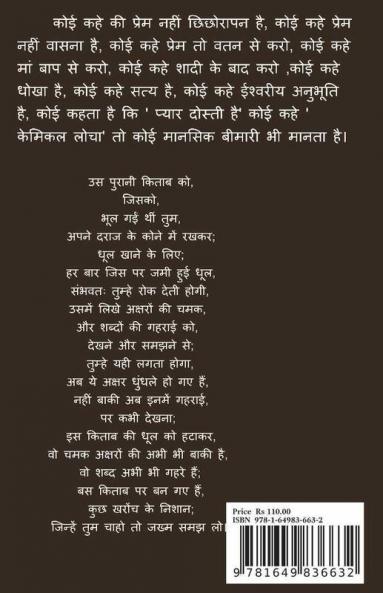 कोई कहे की प्रेम नहीं छिछोरापन है, कोई कहे प्रेम
नहीं वासना है, कोई कहे प्रेम तो वतन से करो, कोई कहे
मां बाप से करो, कोई कहे शादी के बाद करो ,कोई कहे
धोखा है, कोई कहे सत्य है, कोई कहे ईश्वरीय अनुभूति
है, कोई कहता है कि ' प्यार दोस्ती है' कोई कहे '
केमिकल लोचा' तो कोई मानसिक बीमारी भी मानता है।
उस पुरानी किताब को,
जिसको,
भूल गई थीं तुम,
अपने दराज के कोने में रखकर;
धूल खाने के लिए;
हर बार जिस पर जमी हुई धूल,
संभवतः तुम्हे रोक देती होगी,
उसमें लिखे अक्षरों की चमक,
और शब्दों की गहराई को,
देखने और समझने से;
तुम्हे यही लगता होगा,
अब ये अक्षर धुंधले हो गए हैं,
नहीं बाकी अब इनमें गहराई,
पर कभी देखना;
इस किताब की धूल को हटाकर,
वो चमक अक्षरों की अभी भी बाकी है,
वो शब्द अभी भी गहरे हैं;
बस किताब पर बन गए हैं,
कुछ खरोंच के निशान;
जिन्हें तुम चाहो तो जख्म समझ लो।
Price Rs 110.00
ISBN 978-1-64983-663-2
9 781649 836632